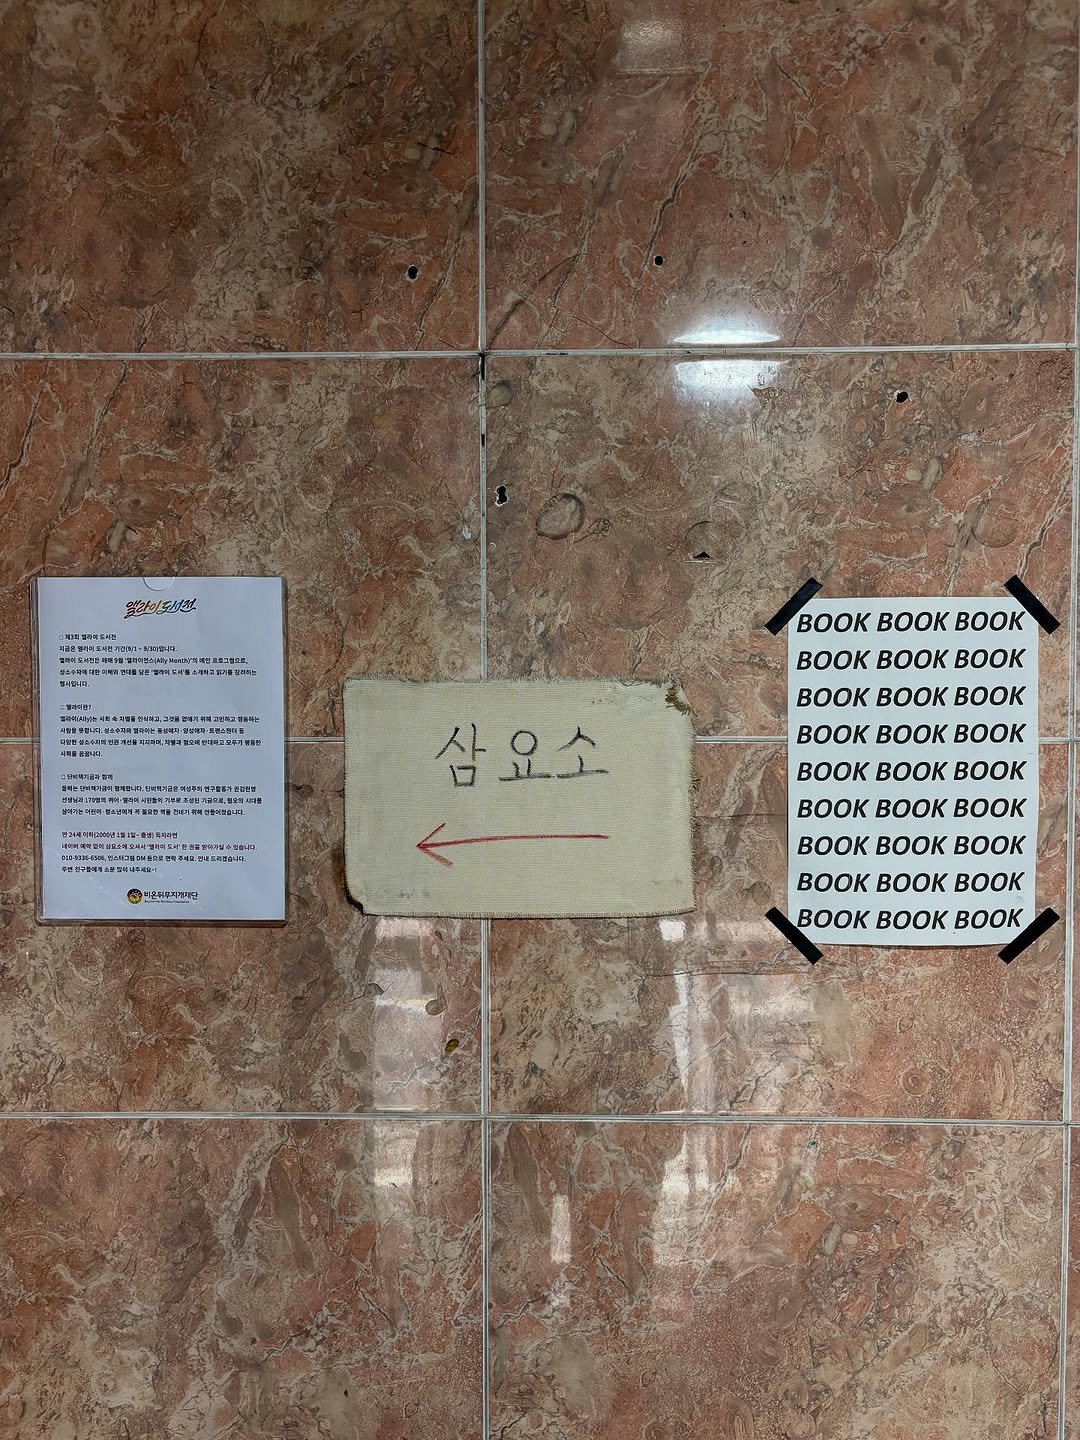 앨라이도서전
□ 제3회 앨라이 도서전
지금은 앨라이 도서전 기간(9/1 ~ 9/30)입니다.
앨라이 도서전은 매해 9월 '앨라이먼스(Ally Month)'의 메인 프로그램으로,
성소수자에 대한 이해와 연대를 담은 '앨라이 도서'를 소개하고 읽기를 장려하는
행사입니다.
□ 앨라이란?
앨라이(Ally)는 사회 속 차별을 인식하고, 그것을 없애기 위해 고민하고 행동하는
사람을 뜻합니다. 성소수자의 앨라이는 동성애자·양성애자·트랜스젠더 등
다양한 성소수자의 인권 개선을 지지하며, 차별과 혐오에 반대하고 모두가 평등한
사회를 꿈꿉니다.
□ 단비책기금과 함께
올해는 단비책기금이 함께합니다. 단비책기금은 여성주의 연구활동가 권김현영
선생님과 170명의 퀴어·앨라이 시민들의 기부로 조성된 기금으로, 혐오의 시대를
살아가는 어린이·청소년에게 꼭 필요한 책을 건네기 위해 만들어졌습니다.
만 24세 이하(2000년 1월 1일~ 출생) 독자라면
네이버 예약 없이 삼요소에 오셔서 '앨라이 도서' 한 권을 받아가실 수 있습니다.
010-9336-6506, 인스타그램 DM 등으로 연락 주세요. 안내 드리겠습니다.
주변 친구들에게 소문 많이 내주세요~!
비온뒤무지개재단
Beyond the Rainbow Foundation
삼요소
BOOK BOOK BOOK
BOOK BOOK BOOK
BOOK BOOK BOOK
BOOK BOOK BOOK
BOOK BOOK BOOK
BOOK BOOK BOOK
BOOK BOOK BOOK
BOOK BOOK BOOK
BOOK BOOK BOOK